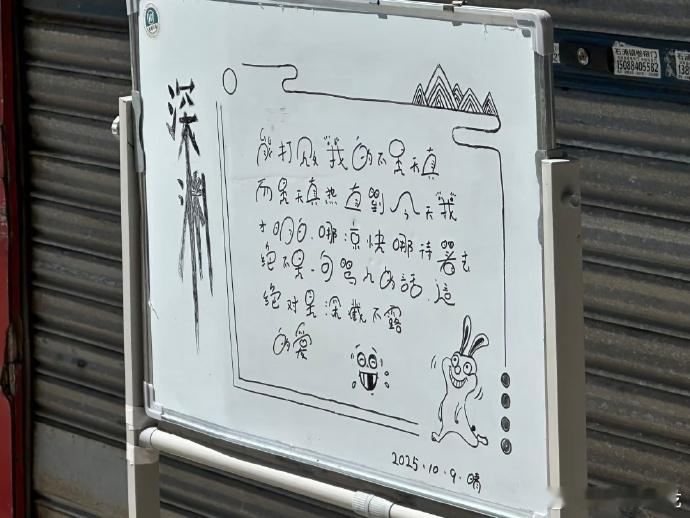 深渊
能打败我的不是天真
而是天真热直到今天我
才明白.哪凉快哪待著去
绝不是一句骂人的話.這
绝对是深藏不露
的愛
2025.10.9.晴
15088405582